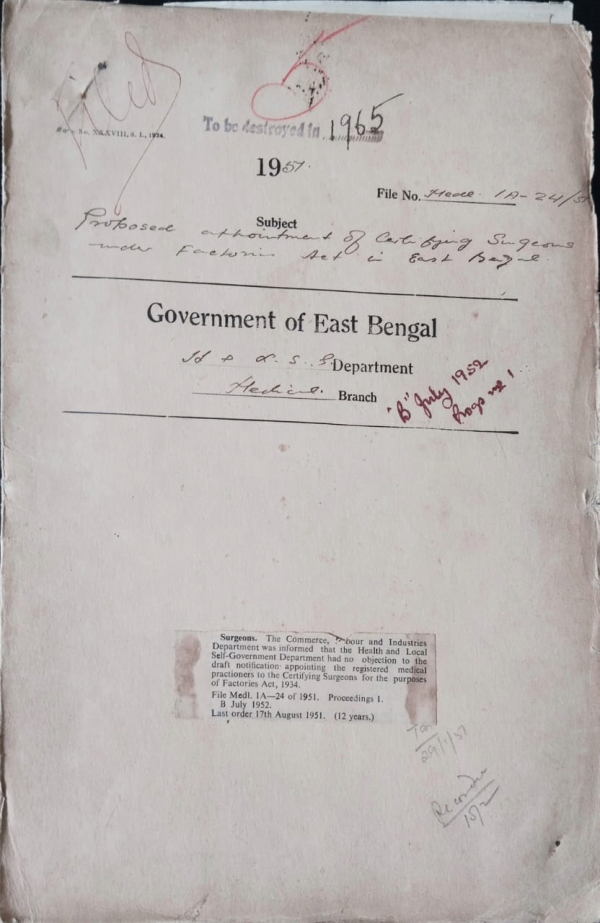 Filed
Form No. XXXVIII, s. 1., 1934.
5
To be destroyed in 1965
1951.
File No. Medl. 1A-24/51
Subject
Proposed appointment of Certifying Surgeons
under Factories Act in East Bengal.
Government of East Bengal
H & L. S. G. Department
Medical. Branch
"B" July 1952
Progs no 1
Surgeons. The Commerce, Labour and Industries
Department was informed that the Health and Local
Self-Government Department had no objection to the
draft notification appointing the registered medical
practioners to the Certifying Surgeons for the purposes
of Factories Act, 1934.
File Medl. 1A—24 of 1951. Proceedings 1.
B July 1952.
Last order 17th August 1951. (12 years.)
29/1/51
Recorder
15/2